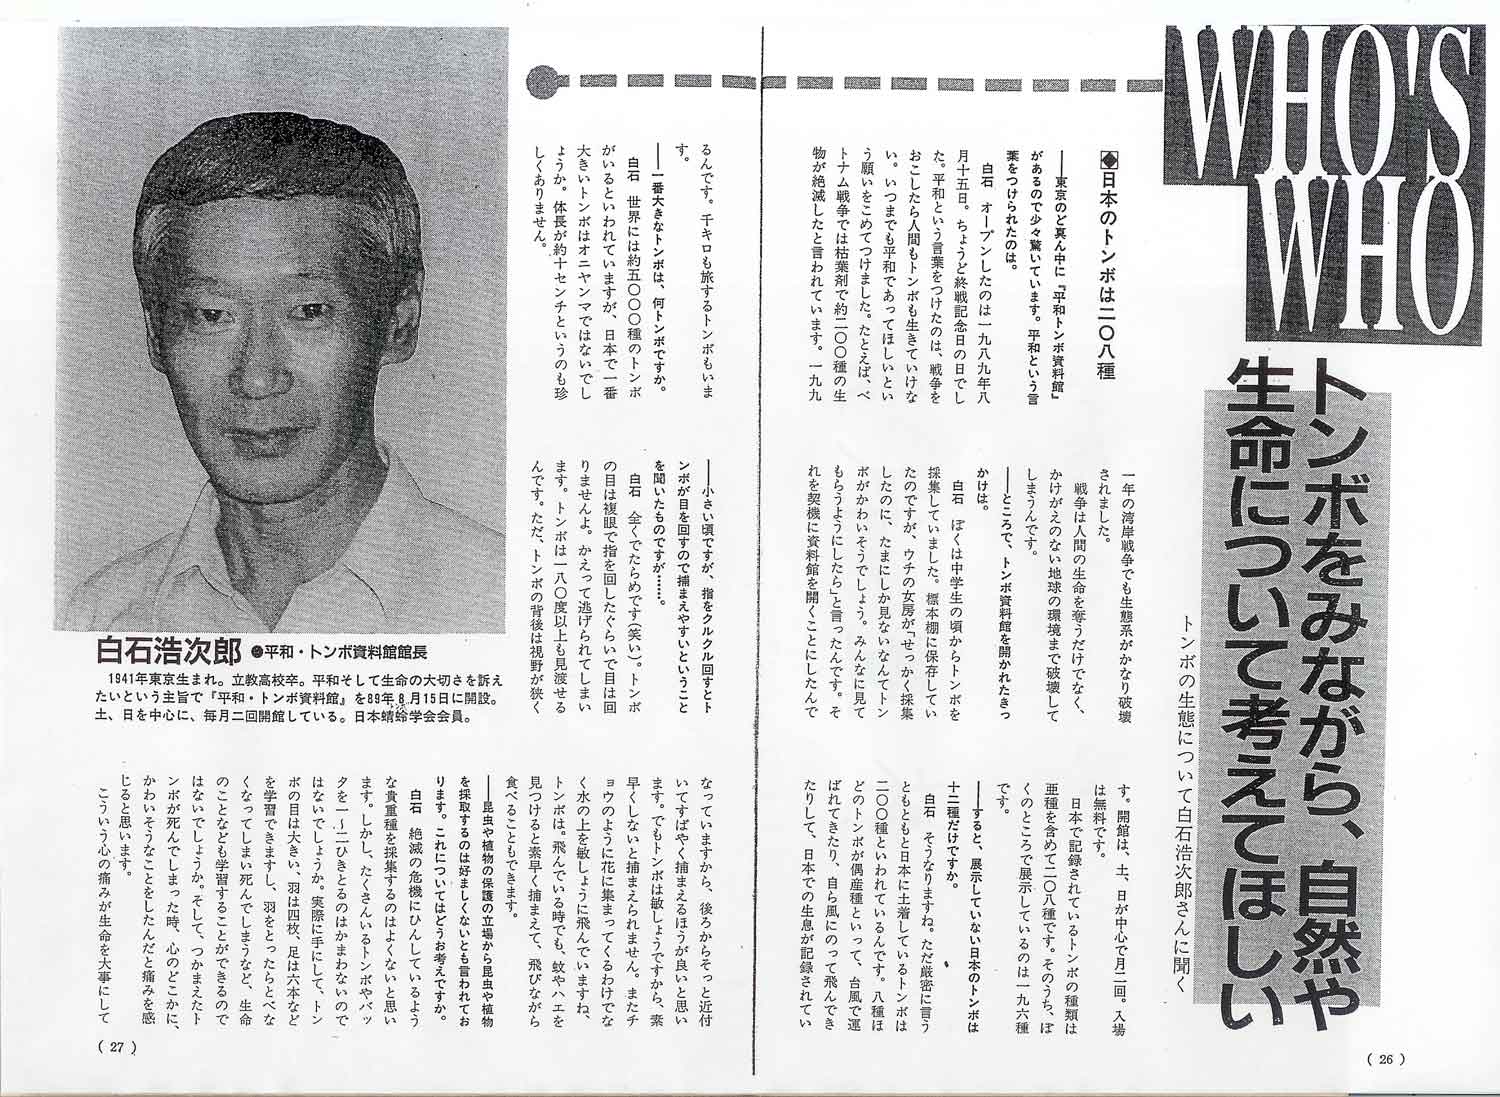 WHO'S
WHO
トンボをみながら、自然や
生命について考えてほしい
トンボの生態について白石浩次郎さんに聞く
◆日本のトンボは二〇八種
――東京のど真ん中に『平和トンボ資料館』
があるので少々驚いています。平和という言
葉をつけられたのは。
白石　オープンしたのは一九八九年八
月十五日。ちょうど終戦記念日の日でし
た。平和という言葉をつけたのは、戦争を
おこしたら人間もトンボも生きていけな
い。いつまでも平和であってほしいとい
う願いをこめてつけました。たとえば、ベ
トナム戦争では枯葉剤で約二〇〇種の生
物が絶滅したと言われています。一九九
一年の湾岸戦争でも生態系がかなり破壊
されました。
戦争は人間の生命を奪うだけでなく、
かけがえのない地球の環境まで破壊して
しまうんです。
――ところで、トンボ資料館を開かれたきっ
かけは。
白石　ぼくは中学生の頃からトンボを
採集していました。標本棚に保存してい
たのですが、ウチの女房が「せっかく採集
したのに、たまにしか見ないなんてトン
ボがかわいそうでしょう。みんなに見て
もらうようにしたら」と言ったんです。そ
れを契機に資料館を開くことにしたんで
す。開館は、土、日が中心で月二回。入場
は無料です。
日本で記録されているトンボの種類は
亜種を含めて二〇八種です。そのうち、ぼ
くのところで展示しているのは一九六種
です。
――すると、展示していない日本のトンボは
十二種だけですか。
白石　そうなりますね。ただ厳密に言う
ともともと日本に土着しているトンボは
二〇〇種といわれているんです。八種ほ
どのトンボが偶産種といって、台風で運
ばれてきたり、自ら風にのって飛んでき
たりして、日本での生息が記録されてい
( 26 )
るんです。千キロも旅するトンボもいま
す。
――一番大きなトンボは、何トンボですか。
白石　世界には約五〇〇〇種のトンボ
がいるといわれていますが、日本で一番
大きいトンボはオニヤンマではないでし
ょうか。体長が約十センチというのも珍
しくありません。
――小さい頃ですが、指をクルクル回すとト
ンボが目を回すので捕まえやすいということ
を聞いたものですが……。
白石　全くでたらめです(笑い)。トンボ
の目は複眼で指を回したぐらいで目は回
りませんよ。かえって逃げられてしまい
ます。トンボは一八〇度以上も見渡せる
んです。ただ、トンボの背後は視野が狭く
なっていますから、後ろからそっと近付
いてすばやく捕まえるほうが良いと思い
ます。でもトンボは敏しょうですから、素
早くしないと捕まえられません。またチ
ョウのように花に集まってくるわけでな
く水の上を敏しょうに飛んでいますね、
トンボは。飛んでいる時でも、蚊やハエを
見つけると素早く捕まえて、飛びながら
食べることもできます。
――昆虫や植物の保護の立場から昆虫や植物
を採取するのは好ましくないとも言われてお
ります。これについてはどうお考えですか。
白石　絶滅の危機にひんしているよう
な貴重種を採集するのはよくないと思い
ます。しかし、たくさんいるトンボやバッ
タを一～二ひきとるのはかまわないので
はないでしょうか。実際に手にして、トン
ボの目は大きい、羽は四枚、足は六本など
を学習できますし、羽をとったらとべな
くなってしまい死んでしまうなど、生命
のことなども学習することができるので
はないでしょうか。そして、つかまえたト
ンボが死んでしまった時、心のどこかに、
かわいそうなことをしたんだと痛みを感
じると思います。
こういう心の痛みが生命を大事にして
白石浩次郎 ●平和・トンボ資料館館長
1941年東京生まれ。立教高校卒。平和そして生命の大切さを訴え
たいという主旨で『平和・トンボ資料館』を89年8月15日に開設。
土、日を中心に、毎月二回開館している。日本蜻蛉学会会員。
( 27 )